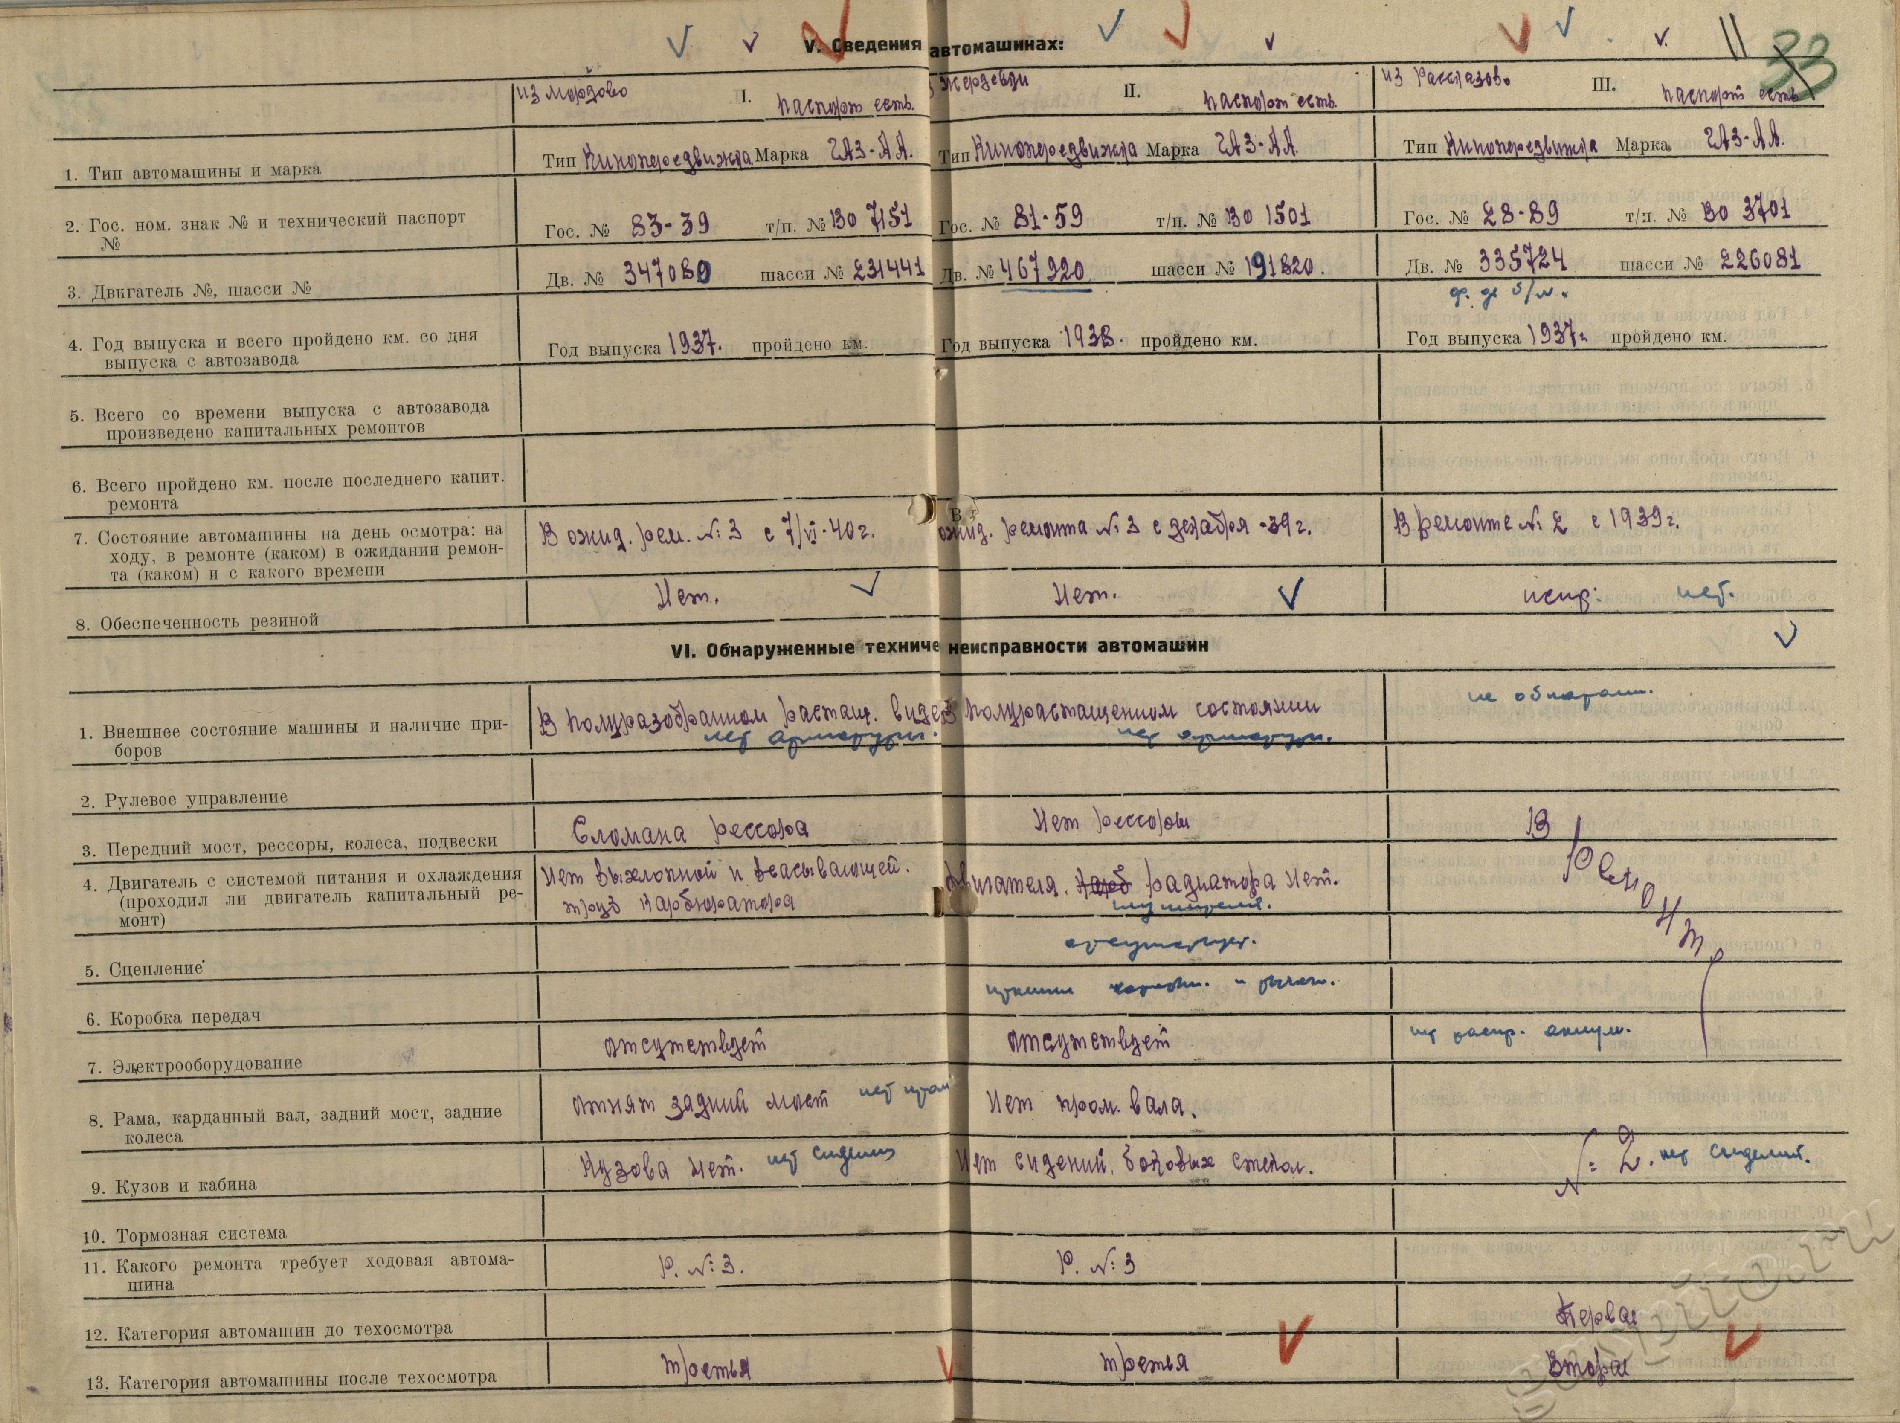 V. Сведения автомашинах:
33
из Мордово I. паспорт есть.
Жердевки II. паспорт есть.
из Рассказово III. паспорт есть
1. Тип автомашины и марка
Тип Кинопередвижка Марка ГАЗ-АА.
Тип Кинопередвижка Марка ГАЗ-АА.
Тип Кинопередвижка Марка ГАЗ-АА.
2. Гос. ном. знак № и технический паспорт
№
Гос. № 83-39 т/п. № ВО 7151
Гос. № 81-59 т/п. № ВО 1501
Гос. № 28-89 т/п. № ВО 3701
3. Двигатель №, шасси №
Дв. № 347080 шасси № 231441
Дв. № 467920 шасси № 191820.
Дв. № 335724 шасси № 226081
4. Год выпуска и всего пройдено км. со дня
выпуска с автозавода
Год выпуска 1937. пройдено км.
Год выпуска 1938. пройдено км.
Год выпуска 1937г. пройдено км.
5. Всего со времени выпуска с автозавода
произведено капитальных ремонтов
6. Всего пройдено км. после последнего капит.
ремонта
7. Состояние автомашины на день осмотра: на
ходу, в ремонте (каком) в ожидании ремон-
та (каком) и с какого времени
В ожид. рем. №:3 с 7/VI-40 г.
В ожид. ремонта №:3 с декабря -39 г.
В ремонте №: 2 с 1939 г.
8. Обеспеченность резиной
Нет.
Нет.
нет.
VI. Обнаруженные техниче неисправности автомашин
1. Внешнее состояние машины и наличие при-
боров
В полуразобранном растащ. виде
нет арматуры.
В полурастащенном состоянии
нет арматуры.
2. Рулевое управление
3. Передний мост, рессоры, колеса, подвески
Сломана рессора
Нет рессоры
В ремонте
4. Двигатель с системой питания и охлаждения
(проходил ли двигатель капитальный ре-
монт)
Нет выхлопной и всасывающей.
труб карбюратора
двигателя. радиатора нет.
5. Сцепление
отсутствует.
6. Коробка передач
7. Электрооборудование
отсутствует
отсутствует
8. Рама, карданный вал, задний мост, задние
колеса
отнят задний мост
Нет пром. вала.
9. Кузов и кабина
Кузова нет. нет сидений
Нет сидений, боковых стекол.
№: 2. нет сидений.
10. Тормозная система
11. Какого ремонта требует ходовая автома-
шина
Р. №: 3.
Р. №: 3
12. Категория автомашин до техосмотра
Первая
13. Категория автомашины после техосмотра
третья
третья
Вторая